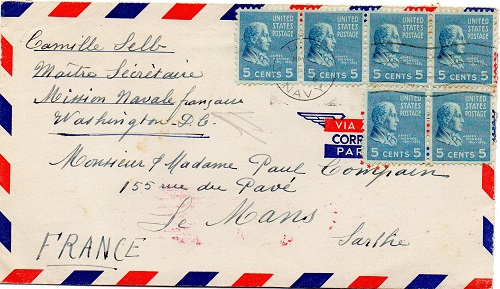 Camille Selb
Maître Sécrétaire
Mission Navale française
Washington-D.C
UNITED STATES POSTAGE
5 CENTS 5
UNITED STATES POSTAGE
5 CENTS 5
UNITED STATES POSTAGE
5 CENTS 5
UNITED STATES POSTAGE
5 CENTS 5
NAVY
5 CENTS 5
5 CENTS 5
VIA
CORR
PAR
Monsieur & Madame Paul Compain
155 rue du Pavé
Le Mans
Sarthe
FRANCE